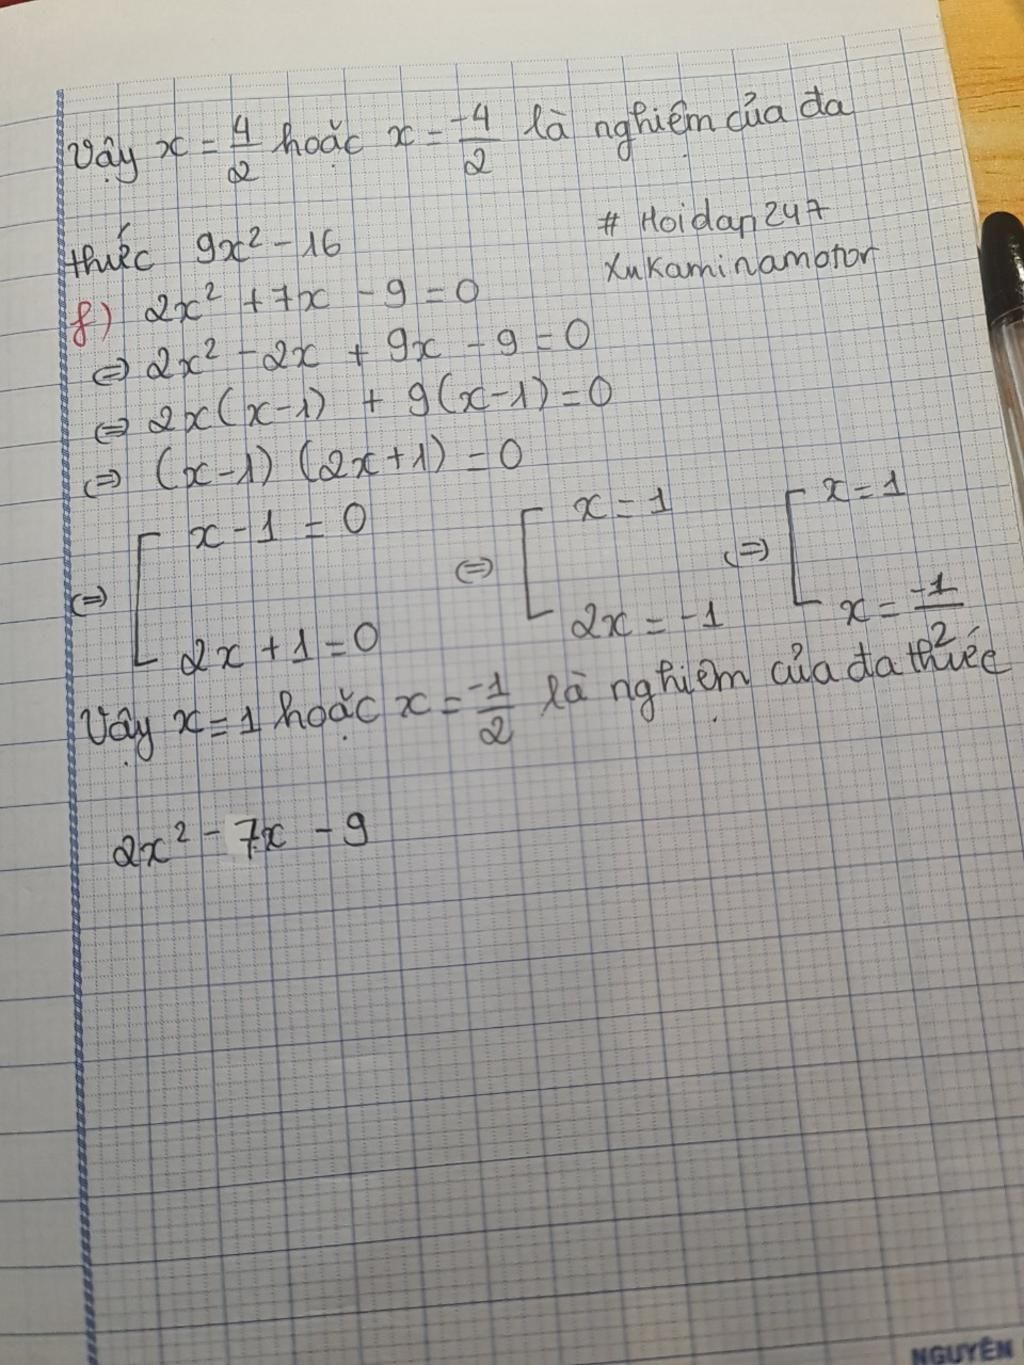 Vậy x = 4/2 hoặc x = -4/2 là nghiệm của đa
thức 9x² - 16
# Hoidap247
Xukaminamotor
f) 2x² + 7x - 9 = 0
⇔ 2x² - 2x + 9x - 9 = 0
⇔ 2x(x-1) + 9(x-1) = 0
⇔ (x-1) (2x+1) = 0
⇔ [ x - 1 = 0 ⇔ [ x = 1 ⇔ [ x = 1
2x + 1 = 0 2x = -1 x = -1/2
Vậy x = 1 hoặc x = -1/2 là nghiệm của đa thức
2x² - 7x - 9
NGUYÊN